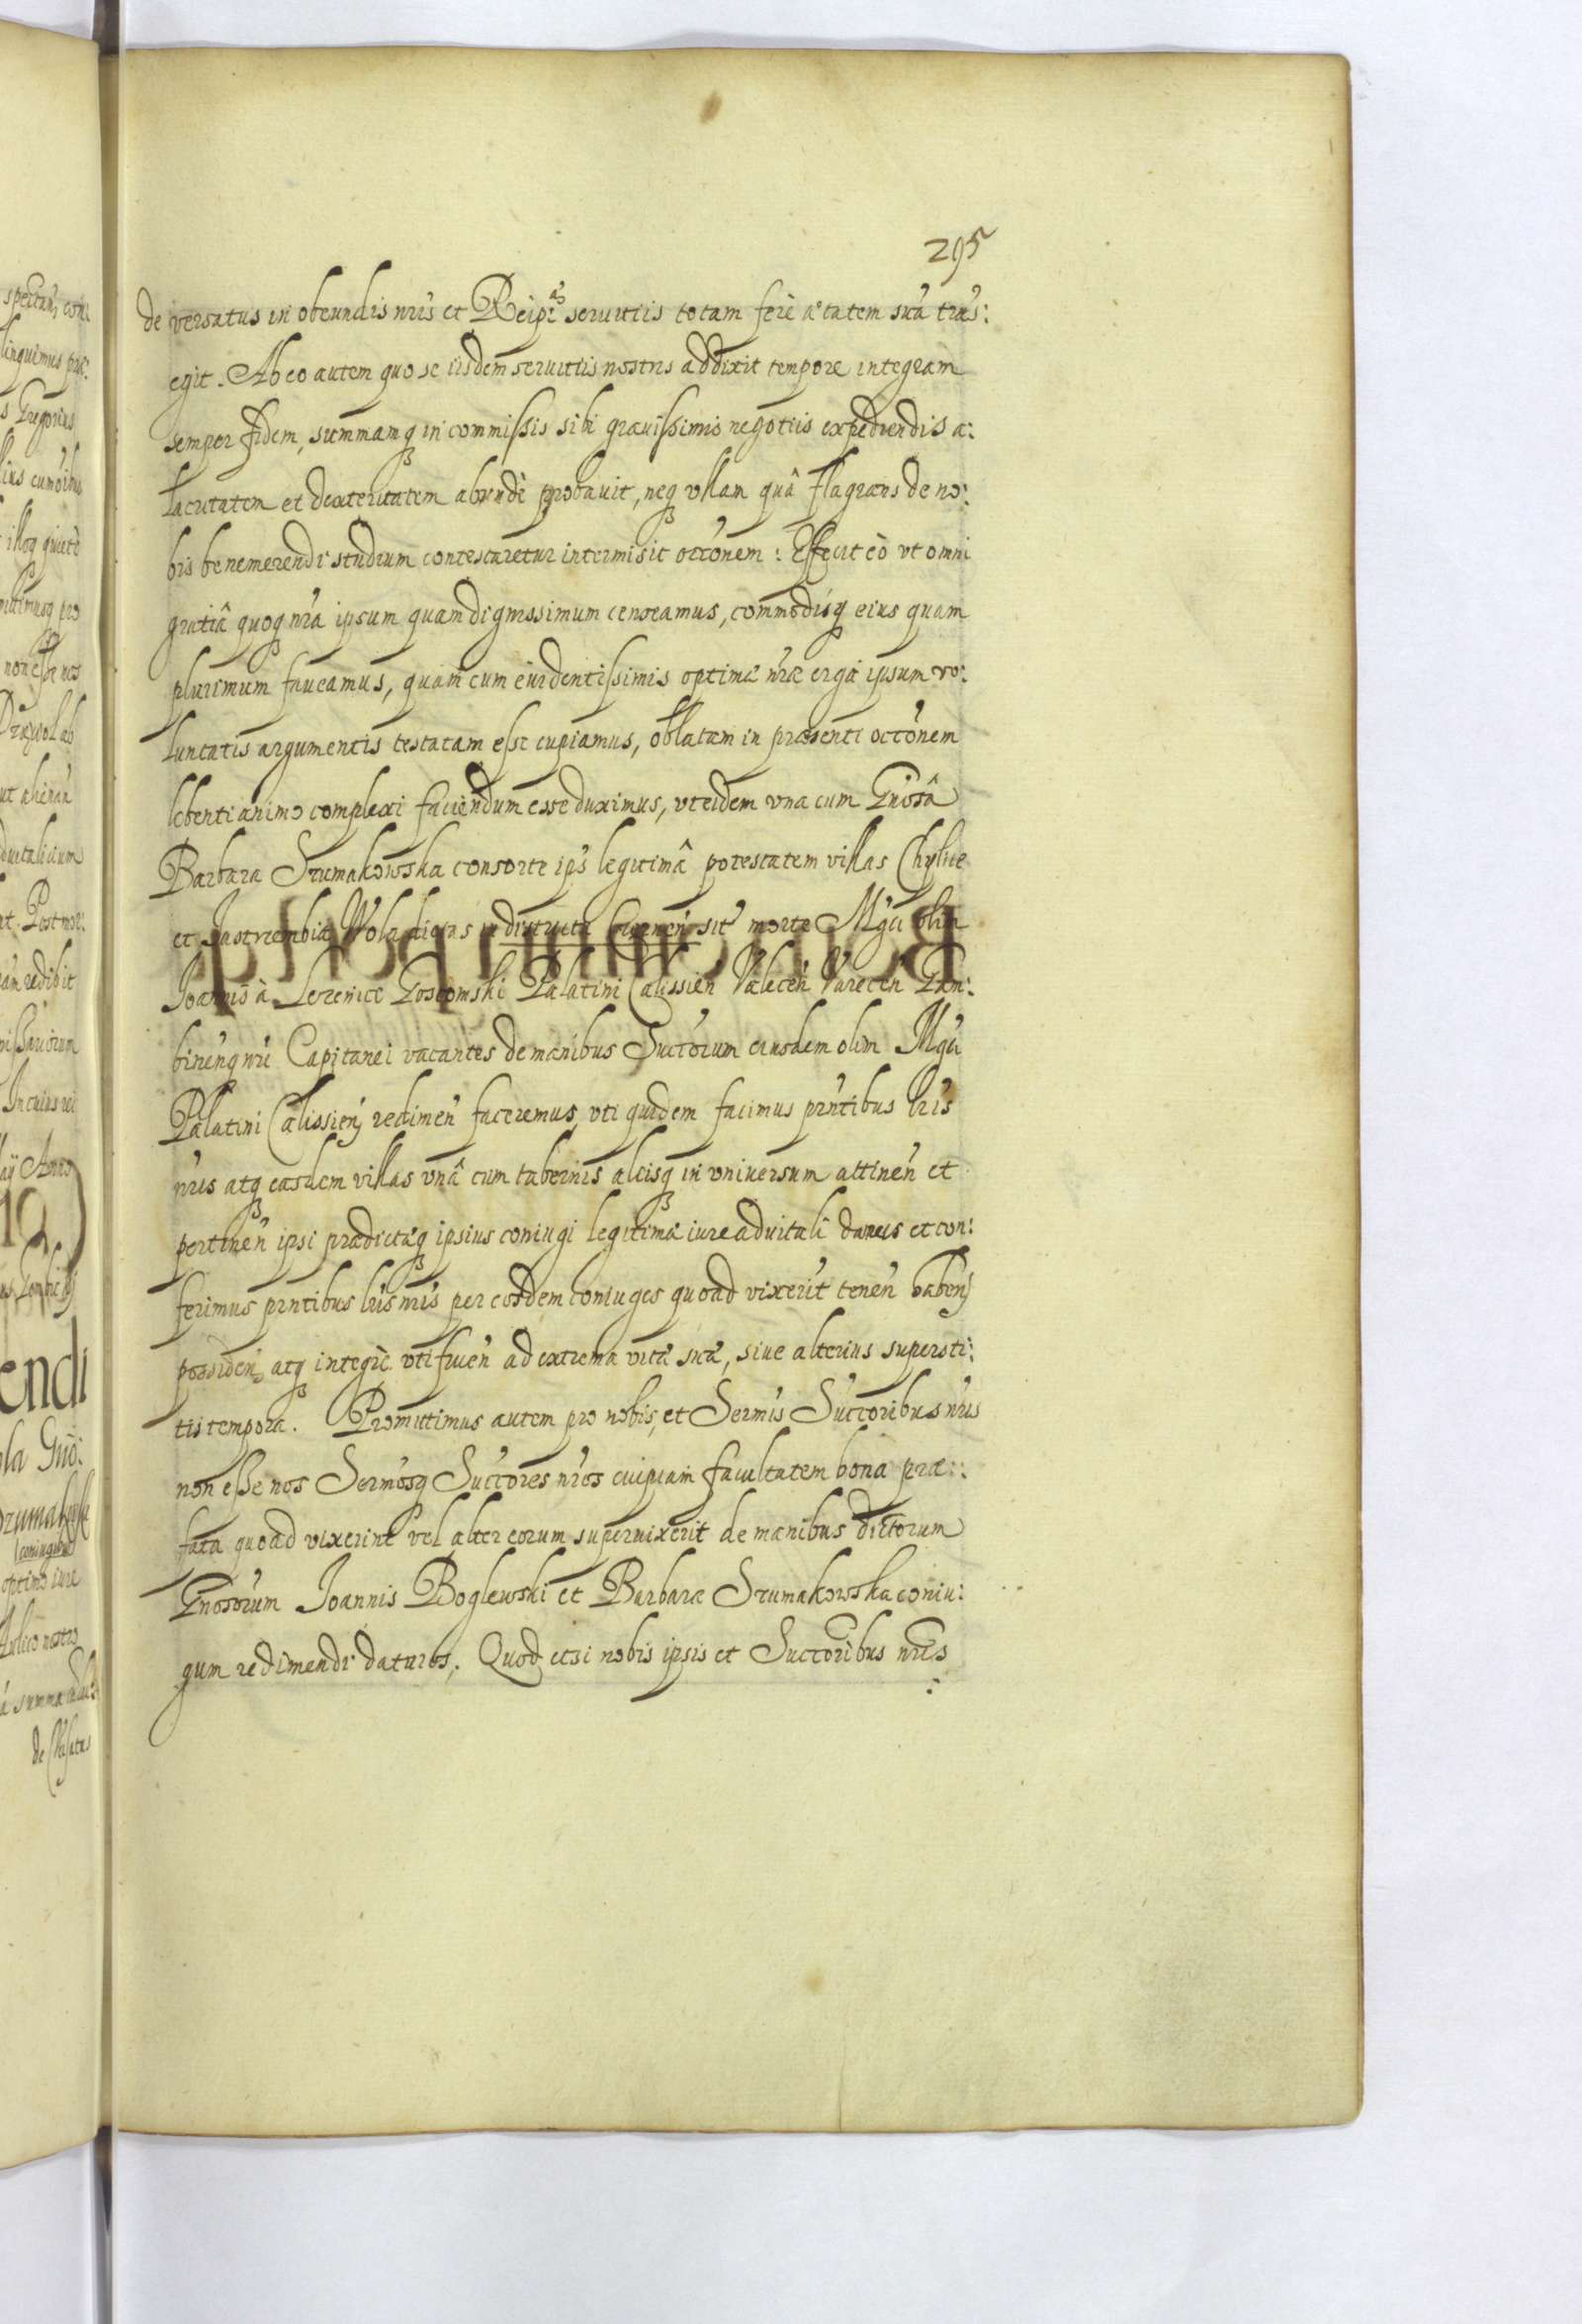 295
de versatus in obeundis nr̃is et Reip: seruitiis totam ferè ætatem suã trãs:
egit. Ab eo autem quo se iisdem seruitiis nostris addixit tempore integram
semper fidem, summamq in commissis sibi grauissimis negotiis expediendis a:
lacritatem et dexteritatem abundè probauit, neq vllam quâ flagrans de no:
bis benemerendi studium contestaretur intermisit occõnem: Effecit eò vt omni
gratiâ quoq nr̃a ipsum quam dignissimum censeamus, commodisq eius quam
plurimum faueamus, quam cum euidentissimis optimæ nr̃æ erga ipsum vo:
luntatis argumentis testatam esse cupiamus, oblatam in præsenti occõnem
libenti animo complexi faciendum esse duximus, vt eidem vna cum Gnosâ
Barbara Szumakowska consorte ips̃ legitimâ potestatem villas Chylice
et Jastrzembia Wola dictas in districtu Czernen̄ sit̃ morte Mgci olim
Joannis à Lezenice Gostomski Palatini Calissien̄ Valecen̄ Varecen̄ Gar:
binenq nr̃i Capitanei vacantes de manibus Succrorum eiusdem olim Mgci
Palatini Calissien̄ redimen̄ faceremus, vti quidem facimus pr̃ntibus lr̃is
nr̃is atq easdem villas vnâ cum tabernis aliisq in vniuersum attinen̄ et
pertinen̄ ipsi prædictæq ipsius coniugi legitimæ iure aduitali damus et con:
ferimus prntibus lr̃is nr̃is per eosdem coniuges quoad vixerĩt tenen̄ haben̄
possiden̄ atq integrè vtifruen̄ ad extrema vitæ suæ, siue alterius supersti:
tis tempora. Promittimus autem pro nobis, et Sermis Succoribus nr̃is
non esse nos Sermosq Succores nr̃os cuipiam facultatem bona præ:
fata quoad vixerint vel alter eorum superuixerit de manibus dictorum
Gnosorum Joannis Boglewski et Barbaræ Szumakowska coniu:
gum redimendi daturos. Quod etsi nobis ipsis et Succoribus nr̃is